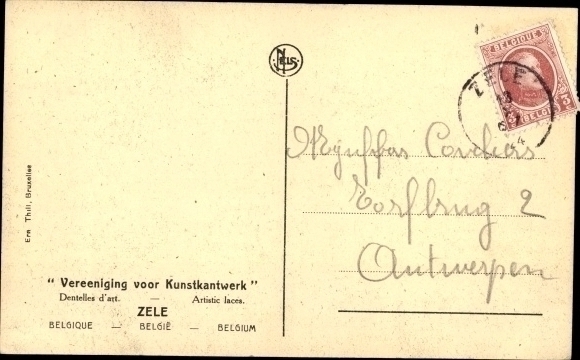 NELS
BELGIQUE
15
BELGIË
ZELE
Mejuffas Cordiers
Torfbrug 2
Antwerpen
Ern. Thill, Bruxelles
" Vereeniging voor Kunstkantwerk "
Dentelles d'art. — Artistic laces.
ZELE
BELGIQUE — BELGIË — BELGIUM